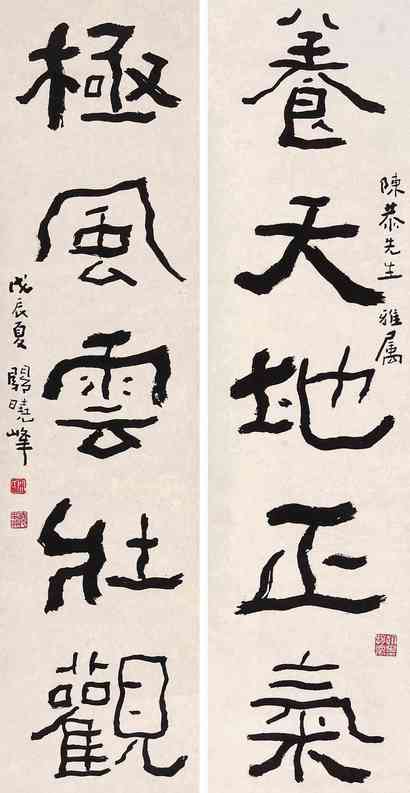 養天地正氣
陳恭先生 雅属
極風雲壯觀
戊辰夏 曉峰